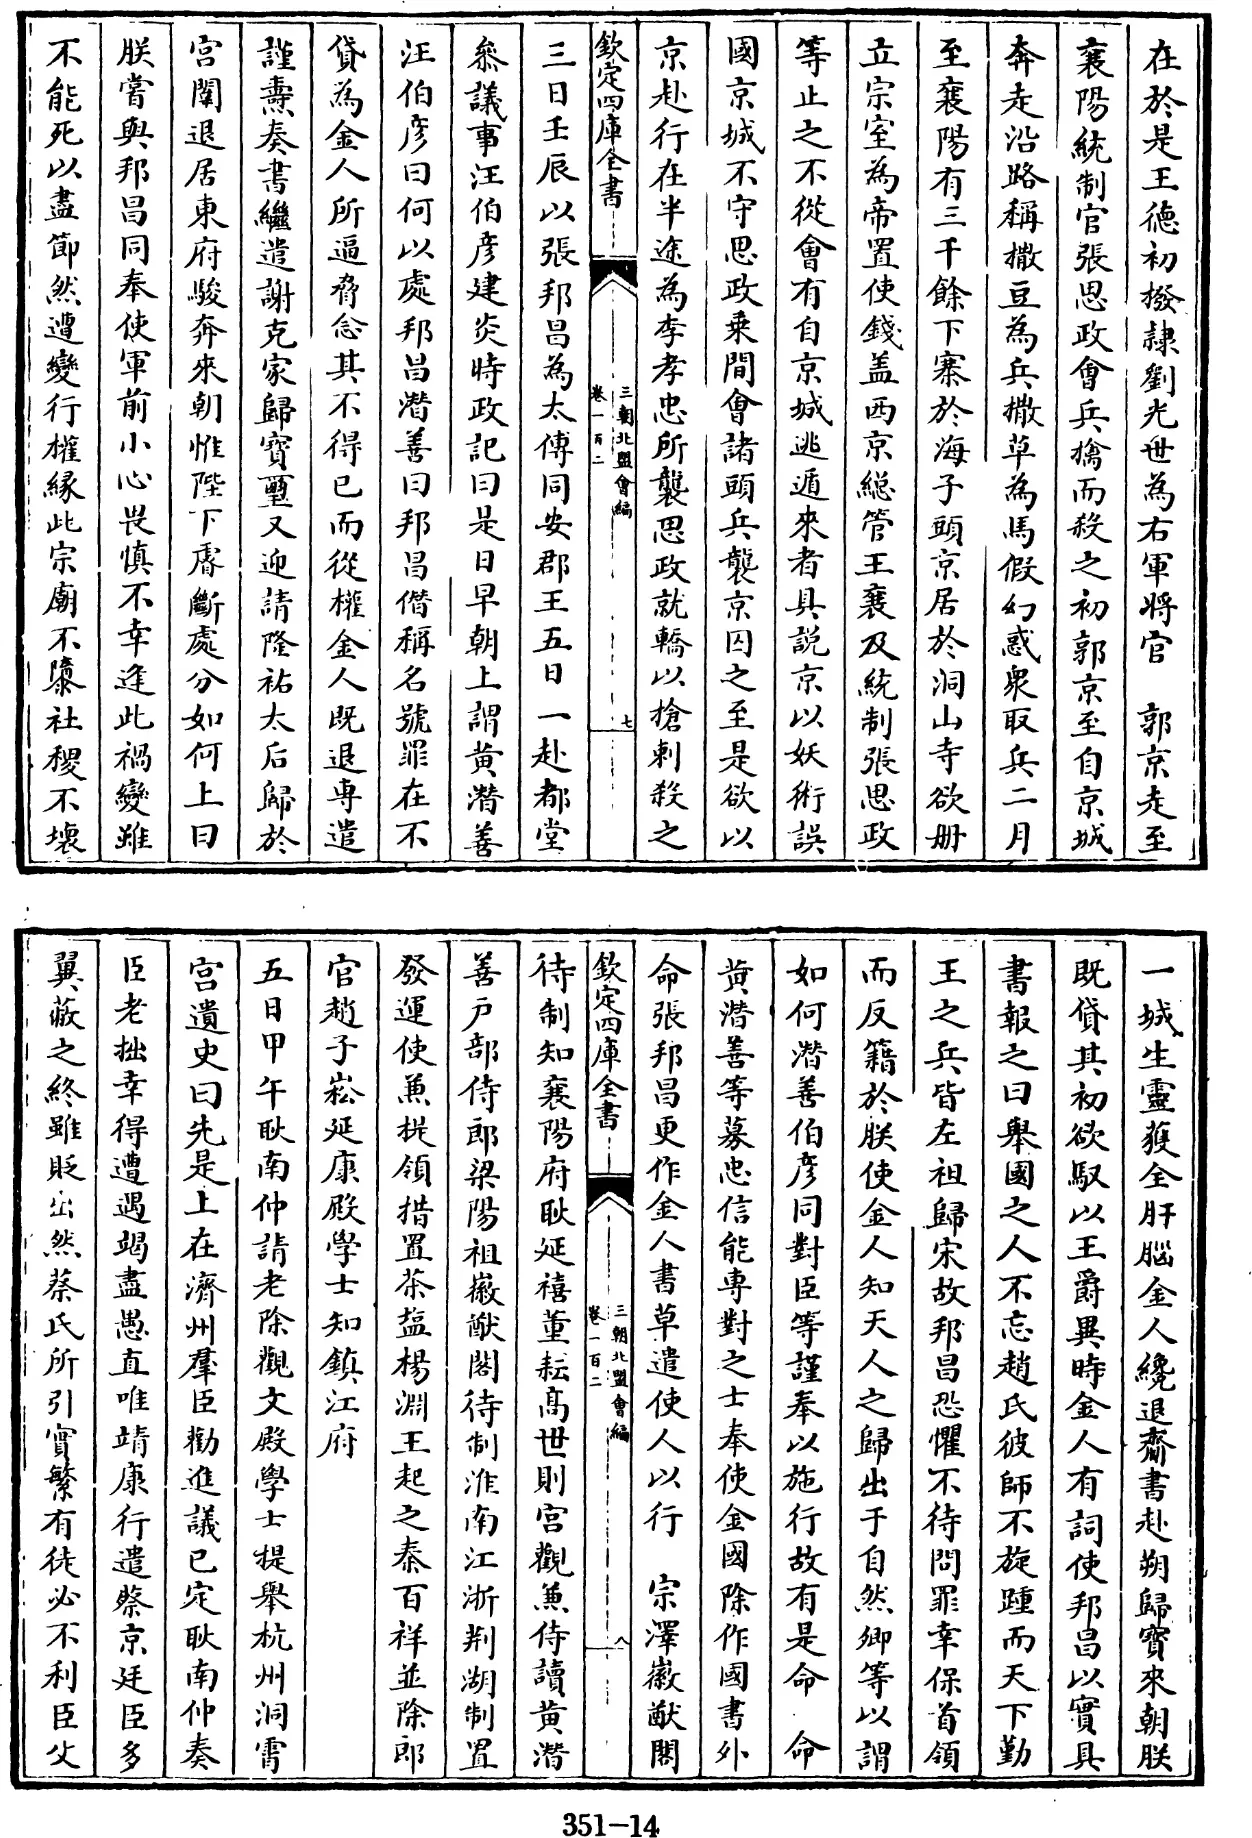 在於是王德初撥隷劉光世為右軍將官　郭京走至
襄陽統制官張思政會兵擒而殺之初郭京至自京城
奔走沿路稱撒豆為兵撒草為馬假幻惑衆取兵二月
至襄陽有三千餘下寨於海子頭京居於洞山寺欲册
立宗室為帝置使錢盖西京総管王襄及統制張思政
等止之不從會有自京城逃遁來者具説京以妖術誤
國京城不守思政乘間會諸頭兵襲京囚之至是欲以
京赴行在半途為李孝忠所襲思政就轎以搶刺殺之
欽定四庫全書
三朝北盟會編
卷一百二
七
三日壬辰以張邦昌為太傅同安郡王五日一赴都堂
叅議事汪伯彦建炎時政記曰是日早朝上謂黄潛善
汪伯彦曰何以處邦昌潛善曰邦昌僭稱名號罪在不
貸為金人所逼脅念其不得已而從權金人既退専遣
謹燾奏書繼遣謝克家歸寶璽又迎請隆祐太后歸於
宮闈退居東府駿奔來朝惟陛下睿斷處分如何上曰
朕嘗與邦昌同奉使軍前小心畏慎不幸逢此禍變雖
不能死以盡節然遭變行權縁此宗廟不隳社稷不壊
一城生靈獲全肝腦金人纔退齎書赴朔歸寶來朝朕
既貸其初欲馭以王爵異時金人有詞使邦昌以實具
書報之曰舉國之人不忘趙氏彼師不旋踵而天下勤
王之兵皆左袒歸宋故邦昌恐懼不待問罪幸保首領
而反籍於朕使金人知天人之歸出于自然卿等以謂
如何潛善伯彦同對臣等謹奉以施行故有是命　命
黄潛善等募忠信能専對之士奉使金國除作國書外
命張邦昌更作金人書草遣使人以行　宗澤徽猷閣
欽定四庫全書
三朝北盟會編
卷一百二
八
待制知襄陽府耿延禧董耘髙世則宮觀兼侍讀黄潛
善户部侍郎梁陽祖徽猷閣待制淮南江浙荆湖制置
發運使兼提領措置茶盐楊淵王起之秦百祥並除郎
官趙子崧延康殿學士知鎮江府
五日甲午耿南仲請老除觀文殿學士提舉杭州洞霄
宮遺史曰先是上在濟州羣臣勸進議已定耿南仲奏
臣老拙幸得遭遇竭盡愚直唯靖康行遣蔡京廷臣多
翼蔽之終雖貶出然蔡氏所引實繁有徒必不利臣父
351-14